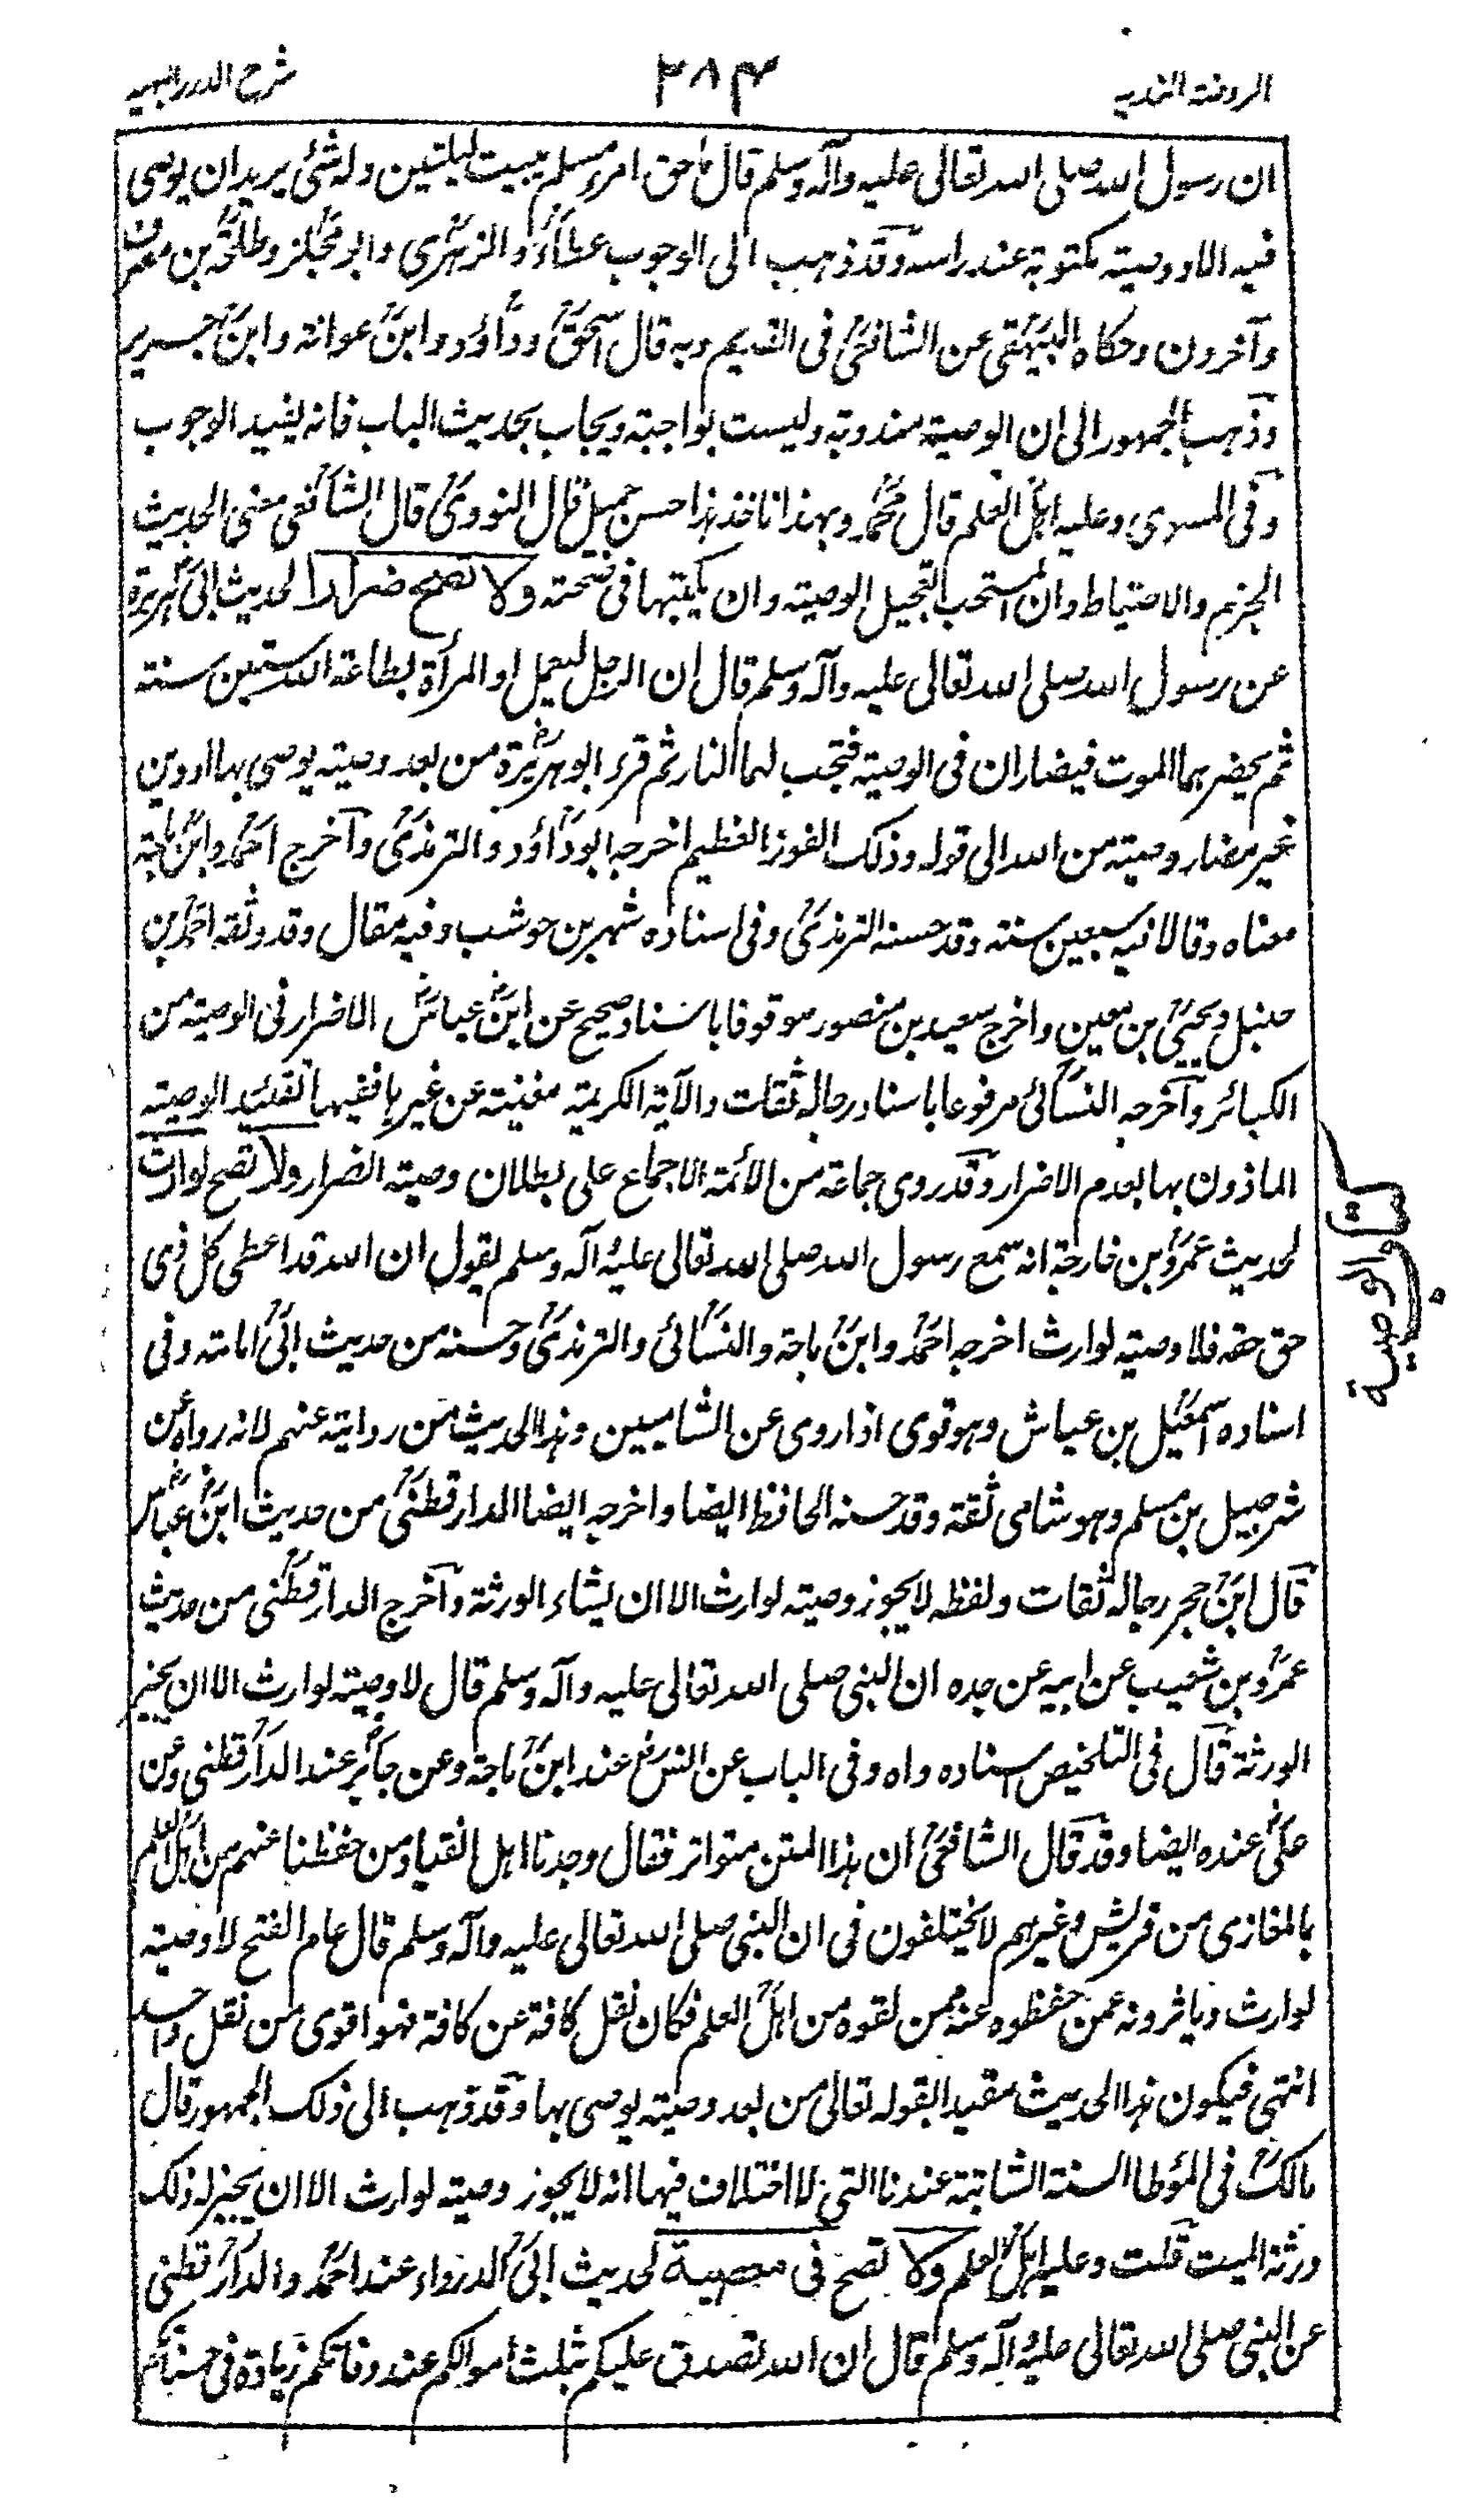 الروضة الندية
٣٨٤
شرح الدرر البهية
ان رسول الله صلى الله تعالى عليه وآله وسلم قال ما حق امرء مسلم يبيت ليلتين وله شئ يريد ان يوصى
فيه الا ووصيته مكتوبة عند راسه وقد ذهب الى الوجوب عطاء والزهرى وابو مجلز وطلحة بن مصرف
وآخرون وحكاه البيهقى عن الشافعى فى القديم وبه قال اسحق وداؤد وابن عوانة وابن جرير
وذهب الجمهور الى ان الوصية مندوبة وليست بواجبة ويجاب بحديث الباب فانه يفيد الوجوب
وفى المسوى وعليه اهل العلم قال محمد وبهذا ناخذ هذا حسن جميل قال النووى قال الشافعى معنى الحديث
الجزم والاحتياط وان المستحب تعجيل الوصية وان يكتبها فى صحته ولا تصح ضرارا لحديث ابى هريرة
عن رسول الله صلى الله تعالى عليه وآله وسلم قال ان الرجل ليعمل او المرأة بطاعة الله ستين سنة
ثم يحضرهما الموت فيضاران فى الوصية فتجب لهما النار ثم قرء ابو هريرة من بعد وصية يوصى بها او دين
غير مضار وصية من الله الى قوله وذلك الفوز العظيم اخرجه ابو داؤد والترمذى وآخرج احمد وابن ماجة
معناه وقالا فيه سبعين سنة وقد حسنه الترمذى وفى اسناده شهر بن حوشب وفيه مقال وقد وثقه احمد بن
حنبل ويحيى بن معين واخرج سعيد بن منصور موقوفا باسناد صحيح عن ابن عباس الاضرار فى الوصية من
الكبائر وآخرجه النسائى مرفوعا باسناد رجاله ثقات والآية الكريمة مغنية عن غيرها ففيها تقييد الوصية
الماذون بها بعدم الاضرار وقد روى جماعة من الائمة الاجماع على بطلان وصية الضرار ولا تصح لوارث
لحديث عمرو بن خارجة انه سمع رسول الله صلى الله تعالى عليه وآله وسلم يقول ان الله قد اعطى كل ذى
حق حقه فلا وصية لوارث اخرجه احمد وابن ماجة والنسائى والترمذى وحسنه من حديث ابى امامة وفى
اسناده اسمعيل بن عياش وهو قوى اذا روى عن الشاميين وهذا الحديث من روايته عنهم لانه رواه عن
شرحبيل بن مسلم وهو شامى ثقة وقد حسنه الحافظ ايضا واخرجه ايضا الدارقطنى من حديث ابن عباس
قال ابن حجر رجاله ثقات ولفظه لا يجوز وصية لوارث الا ان يشاء الورثة وآخرج الدارقطنى من حديث
عمرو بن شعيب عن ابيه عن جده ان النبى صلى الله تعالى عليه وآله وسلم قال لا وصية لوارث الا ان يجيز
الورثة قال فى التلخيص اسناده واه وفى الباب عن انس عند ابن ماجة وعن جابر عند الدارقطنى وعن
على عنده ايضا وقد قال الشافعى ان هذا المتن متواتر فقال وجدنا اهل الفتيا ومن حفظنا عنهم من اهل العلم
بالمغازى من قريش وغيرهم لا يختلفون فى ان النبى صلى الله تعالى عليه وآله وسلم قال عام الفتح لا وصية
لوارث وياثرونه عمن حفظوه عنه ممن لقوه من اهل العلم فكان نقل كافة عن كافة فهو اقوى من نقل واحد
انتهى فيكون هذا الحديث مقيدا لقوله تعالى من بعد وصية يوصى بها وقد ذهب الى ذلك الجمهور قال
مالك فى المؤطا السنة الثابتة عندنا التى لا اختلاف فيها انه لا يجوز وصية لوارث الا ان يجيز له ذلك
ورثة الميت قلت وعليه اهل العلم ولا تصح فى معصية لحديث ابى الدرداء عند احمد والدارقطنى
عن النبى صلى الله تعالى عليه وآله وسلم قال ان الله تصدق عليكم بثلث اموالكم عند وفاتكم زيادة فى حسناتكم